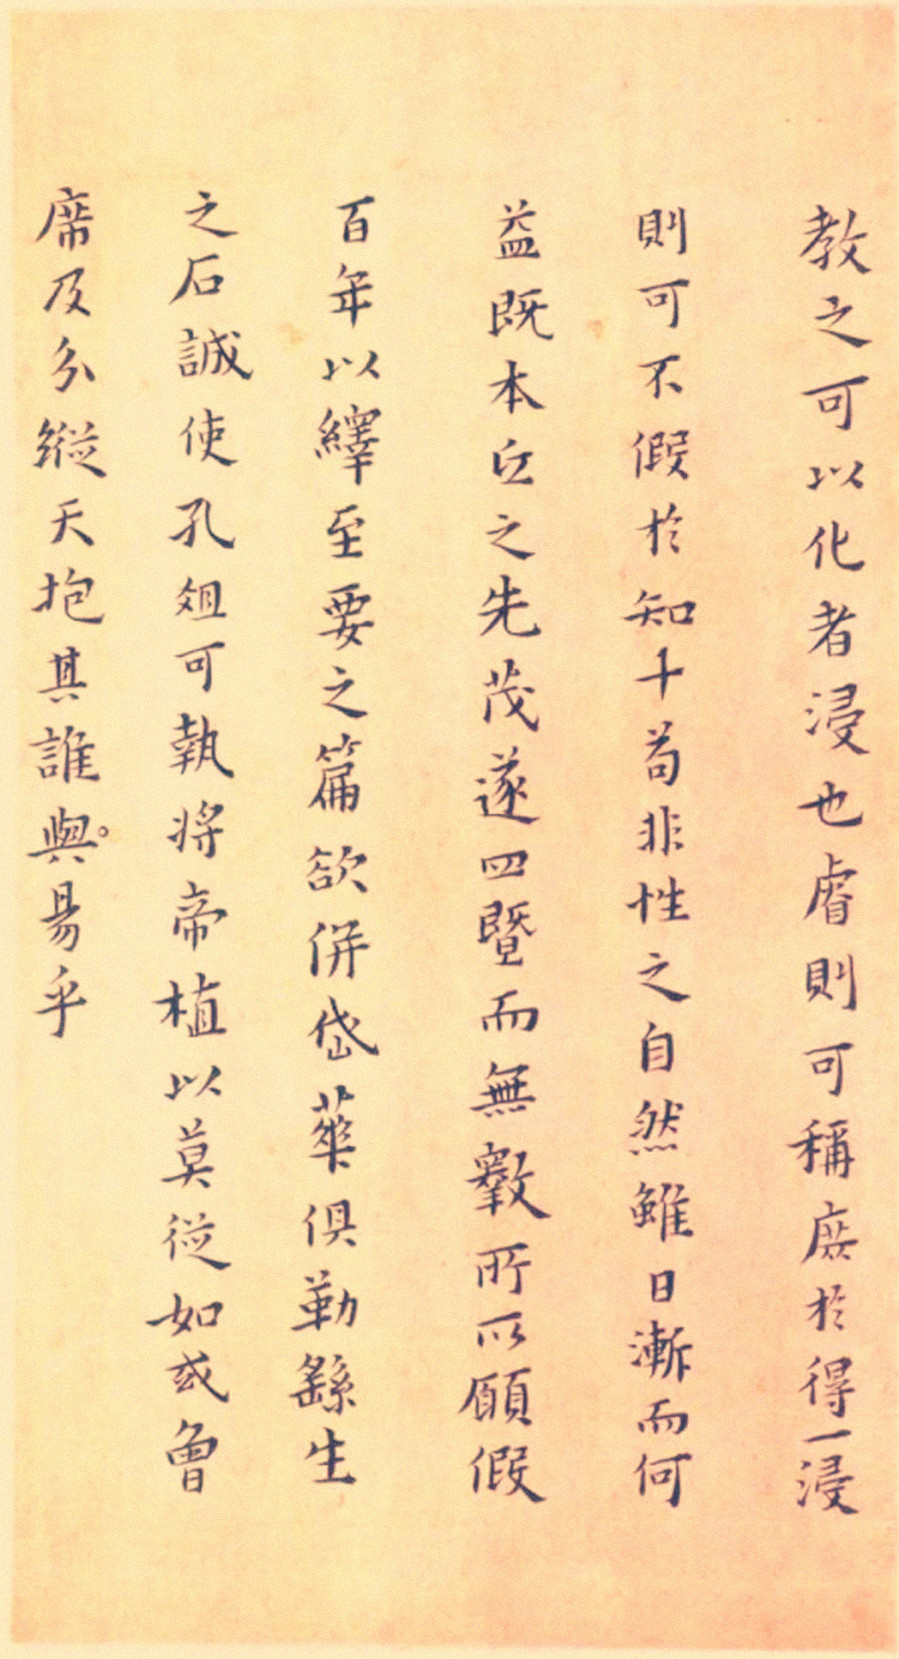 教之可以化者浸也睿則可稱庶於得一浸
則可不假於知十苟非性之自然雖日漸而何
益既本丘之先茂遂四暨而無斁所以願假
百年以繹至要之篇欲併岱華俱勒繇生
之石誠使孔俎可執將帝植以莫從如或曾
席及分縱天抱其誰與易乎